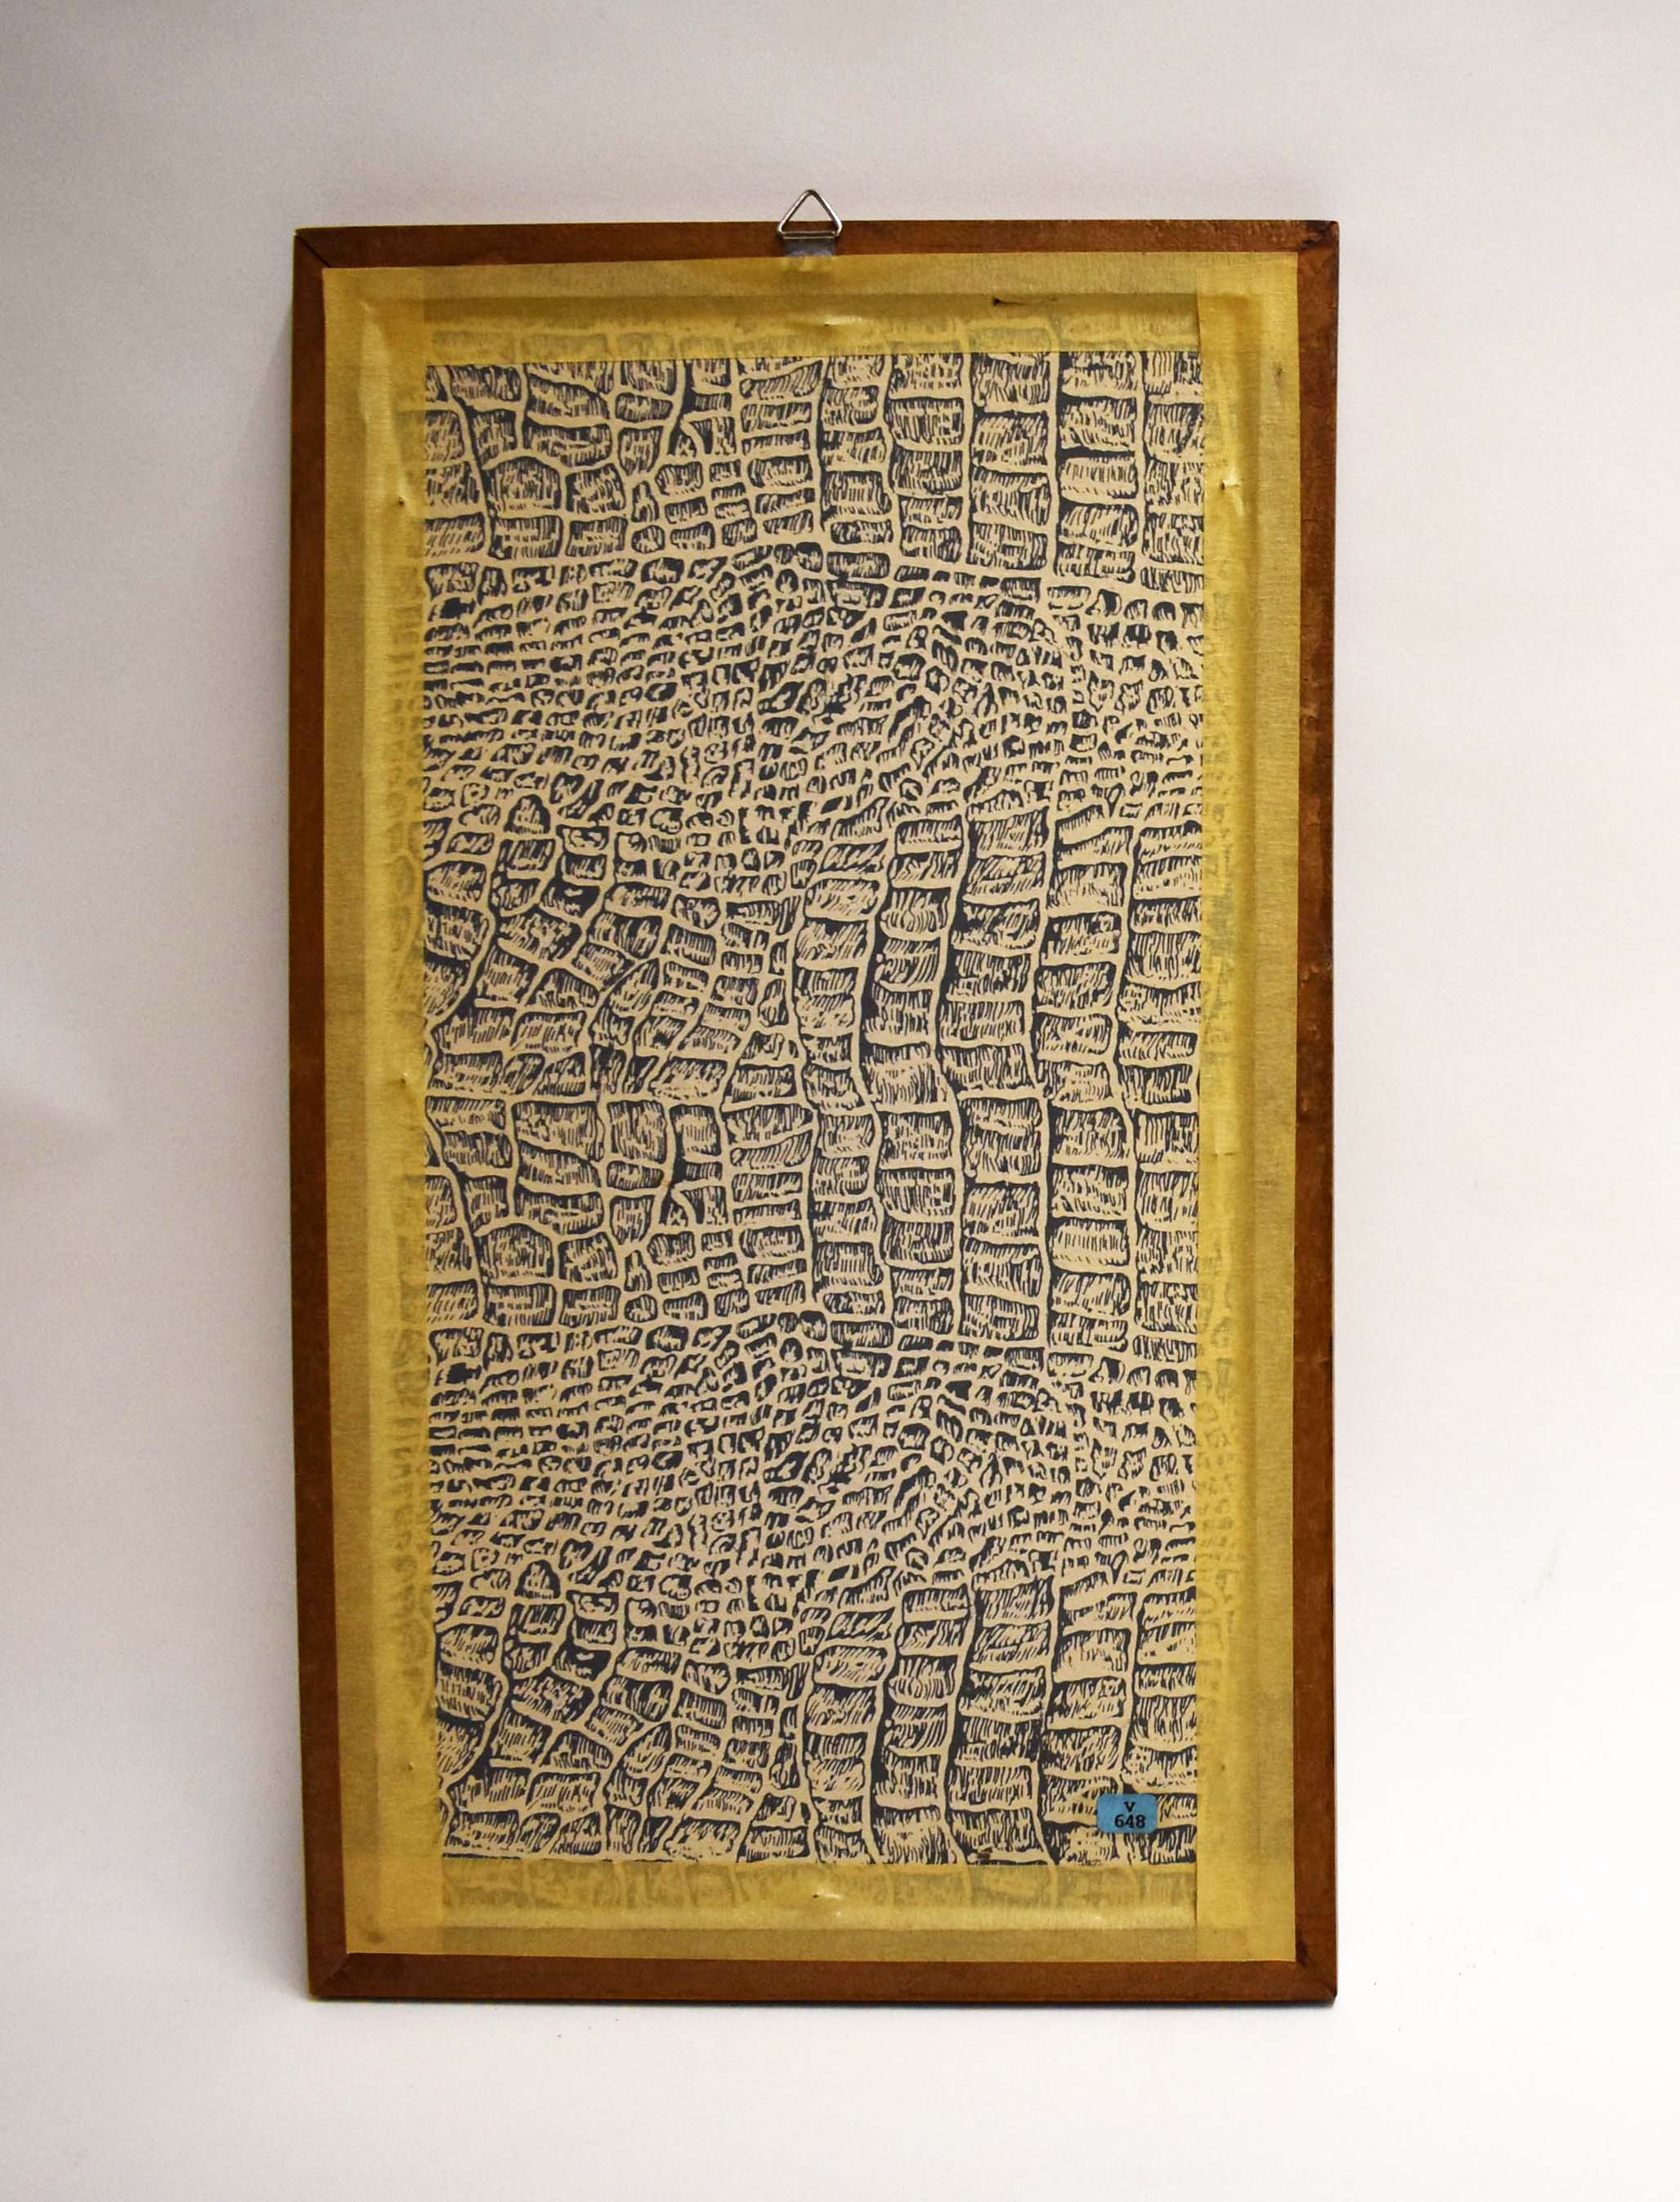 V
648